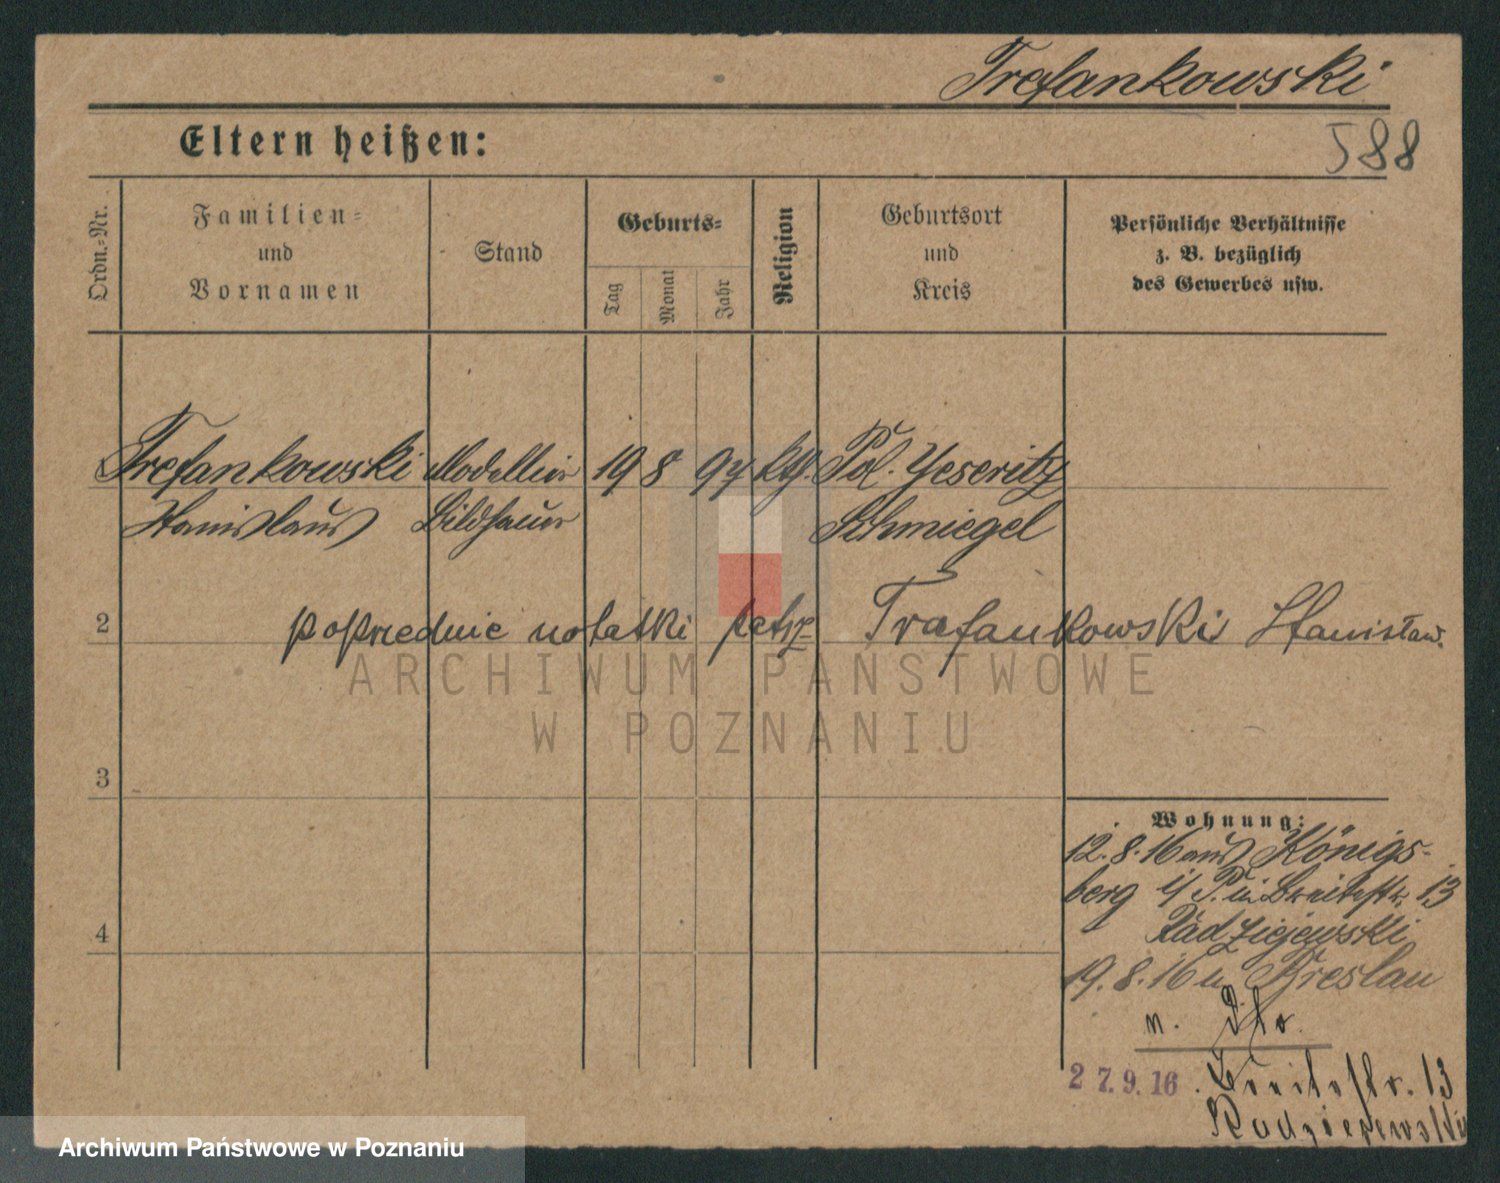 Trefankowski
588
Eltern heißen:
Ordn.-Nr.
Familien-
und
Vornamen
Stand
Geburts-
Tag
Monat
Jahr
Religion
Geburtsort
und
Kreis
Persönliche Verhältnisse
z. B. bezüglich
des Gewerbes usw.
Trefankowski Modelleur 19 8 97 kth. Pol. Jeseritz
Stanislaus Bildhauer Schmiegel
2 poprzednie notatki patrz Trafankowski Stanisław.
ARCHIWUM PAŃSTWOWE
W POZNANIU
3
Wohnung:
12.8.16 aus Königs-
berg i/P. in Breitestr. 13
Radziejewski
4
19.8.16 n. Breslau
n.
27.9.16. Breitestr. 13
Radziejewski
Archiwum Państwowe w Poznaniu